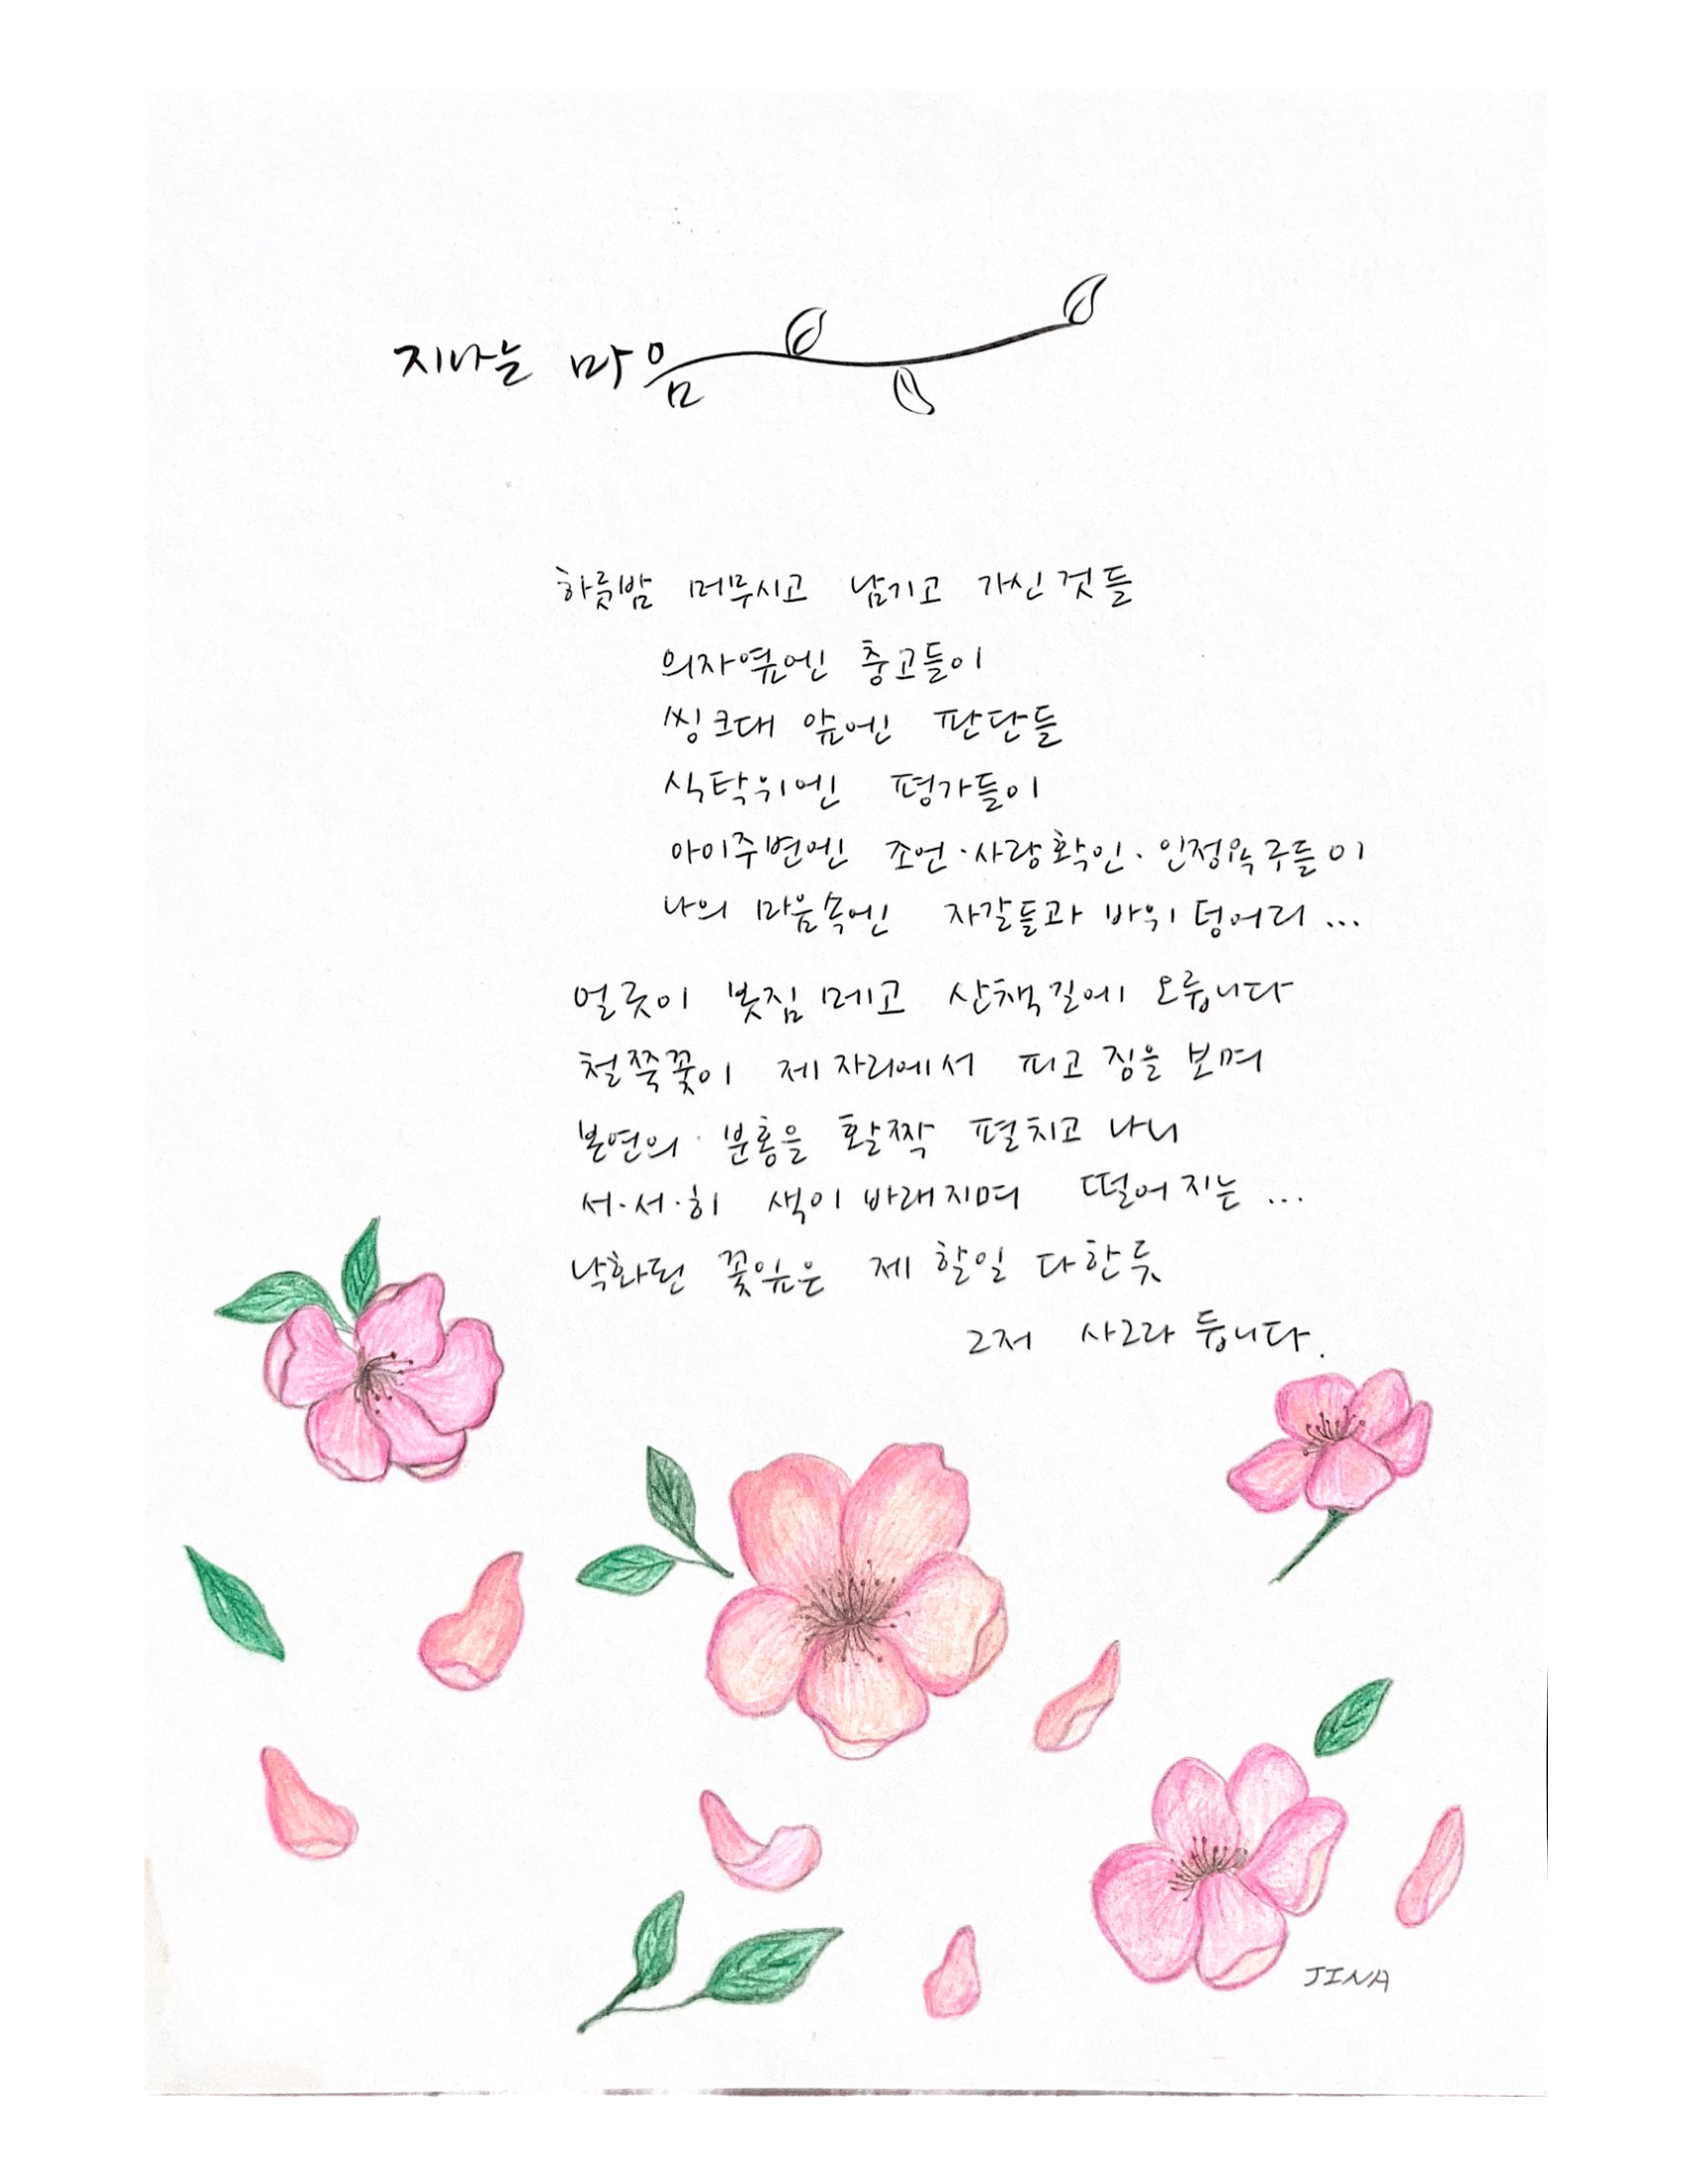 지나는 마음
하룻밤 머무시고 남기고 가신 것들
의자옆엔 충고들이
씽크대 앞엔 판단들
식탁위엔 평가들이
아이주변엔 조언·사랑확인·인정욕구들이
나의 마음속엔 자갈들과 바위 덩어리 ...
얼릇이 봇짐 메고 산책길에 오릅니다
철쭉꽃이 제자리에서 피고 짐을 보며
본연의 분홍을 활짝 펼치고 나니
서·서·히 색이 바래지며 떨어지는 ...
낙화된 꽃잎은 제 할일 다한듯
그저 사그라 듭니다.
JINA